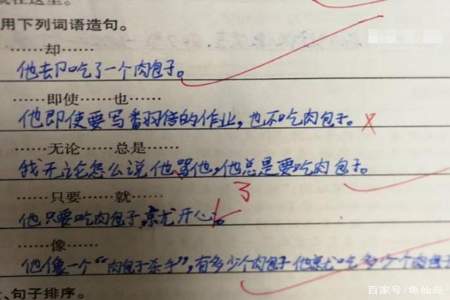 用下列词语造句。
……却……
他去却吃了一个肉包子。
……即使……也……
他即使要写番羽倍的作业，也不吃肉包子。
……无论……总是……
我无论怎么说他骂他，他总是要吃肉包子。
……只要……就……
他只要吃肉包子，就开心。
……像……
他像一个“肉包子杀手”，有多少个肉包子他就吃多少个肉包子
句子排序。
百家号/鱼仙品